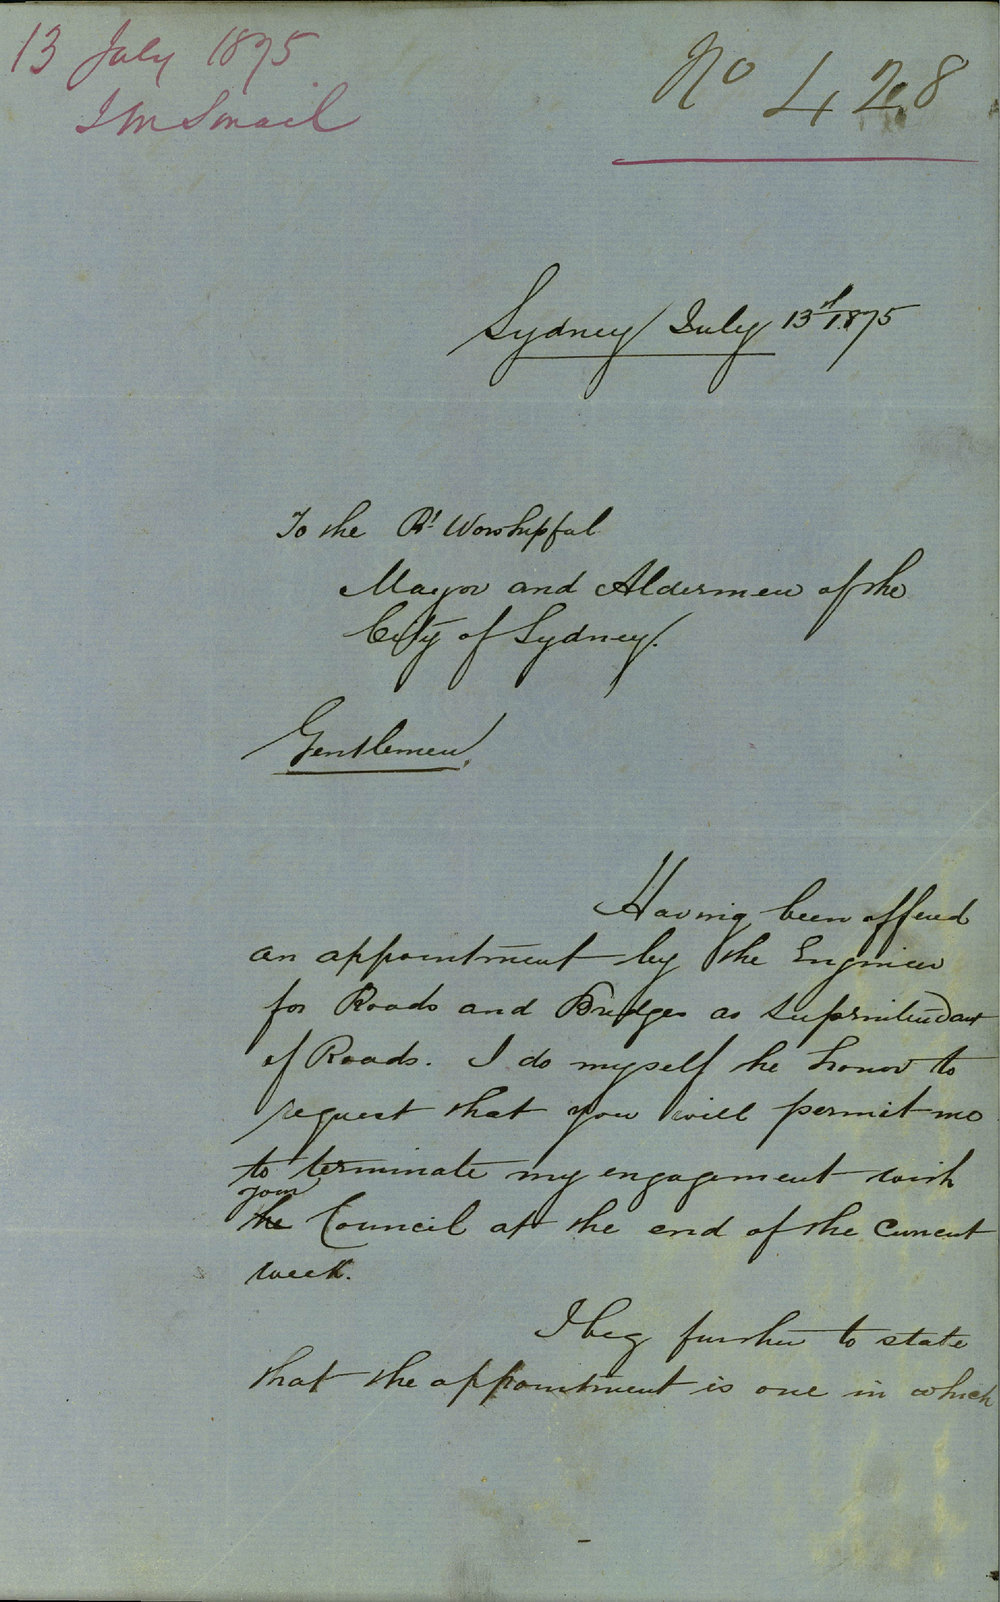 13 July 1875
J M Smail
No 428
Sydney July 13th/1875
To the Rt Worshipful
Mayor and Aldermen of the
City of Sydney.
Gentlemen,
Having been offered
an appointment by the Engineer
for Roads and Bridges as Superintendant
of Roads. I do myself the honor to
request that you will permit me
to terminate my engagement with
your
the Council at the end of the current
week.
I beg further to state
that the appointment is one in which